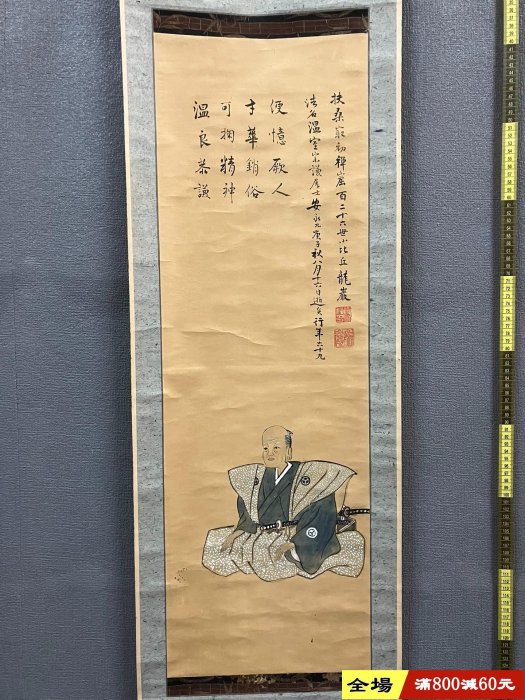 温良恭謙
可掬精神
才華銷俗
便憶厥人
法名温室宗謙居士安永九庚子秋八月十六日逝矣行年六十九
扶桑最初禅窟百二十六世小比丘龍巖
全場
滿800減60元